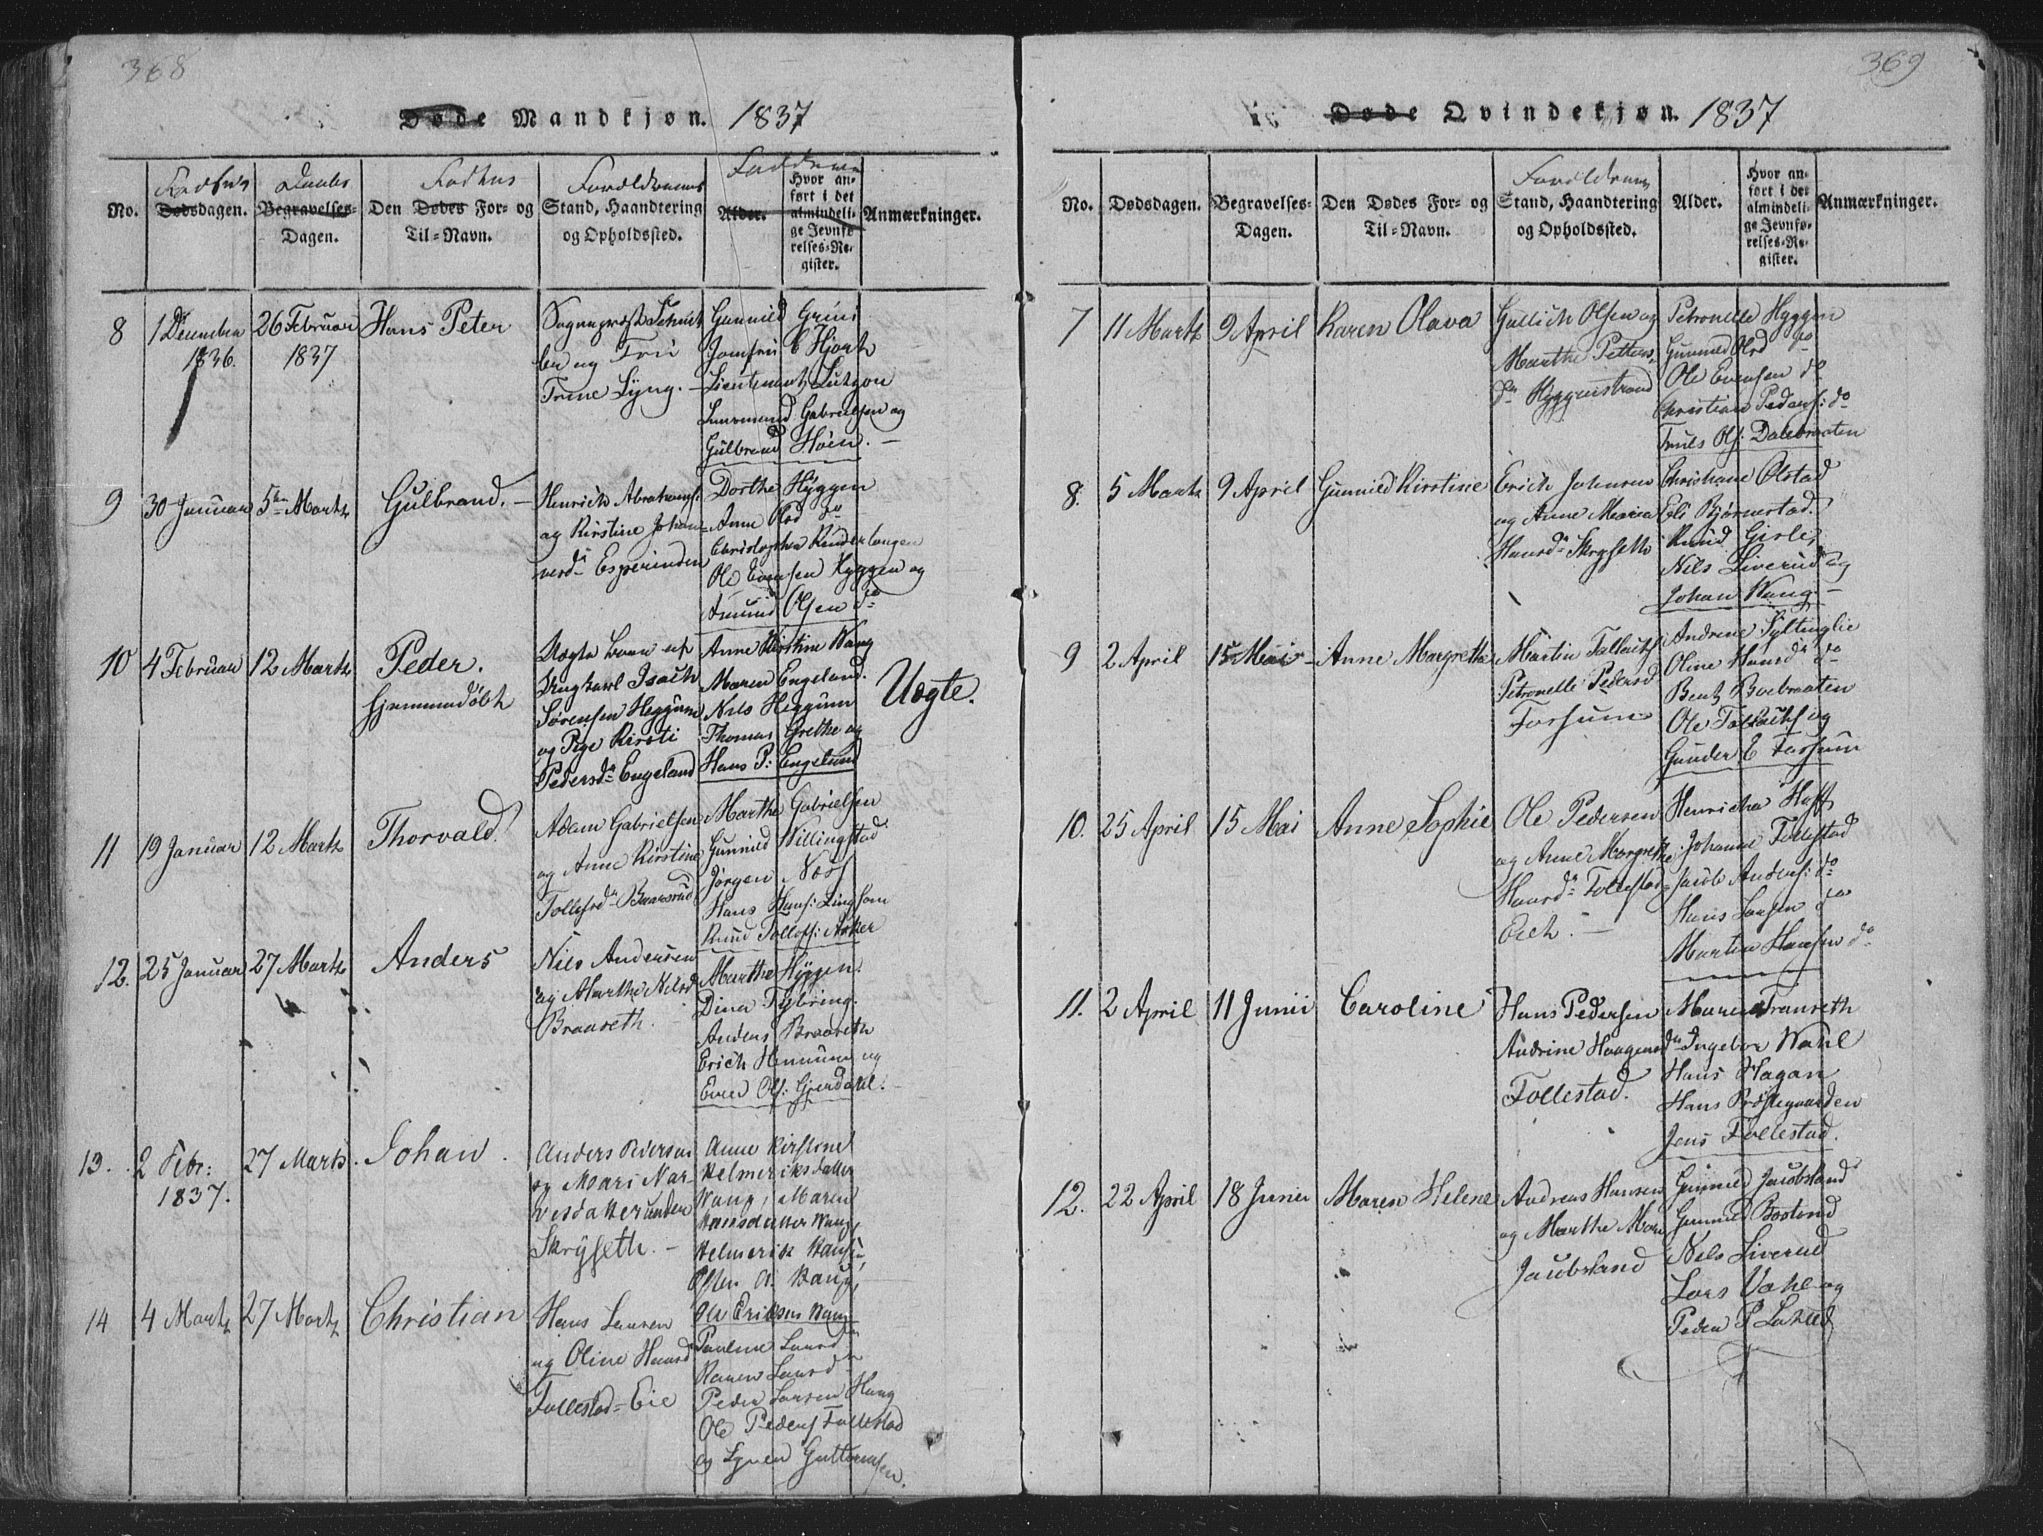 368
Døde Mandkjøn. 1837
Fødsels
Daabs
Fødtes
Forældrenes
Faddere
No.
Dødsdagen.
Begravelses-
Dagen.
Den Dødes For- og
Til-Navn.
Stand, Haandtering
og Opholdssted.
Alder.
Hvor an-
ført i det
almindeli-
ge Jevnfø-
relses-Re-
gister.
Anmærkninger.
8
1 December
1836.
26 Februar
1837
Hans Peter
Sogneprest Schnit
ler og Fru
Trine Lyng. -
Gunnild Grini
Jomfru C Hjort
Lieutenant Lutzon
Gabrielsen og
Gulbrand Høien. -
9
30 Januar
5te Marts
Gulbrand. -
Henrich Abrahams.
og Kirstine Johan-
nesd. Esperinden
Dorthe Hyggen
Anne Olsd do
Christopher Kinderlangen
Ole Evensen Hyggen og
Amund Olsen do
10
4 Februar
12 Marts
Peder.
hjemmedøbt
Uægte barn af
Ungkarl Isach
Sørensen Heggum
og Pige Kirsti
Pedersd. Engeland
Anne Kirstine Wang
Maren Engeland.
Nils Heggum
Thomas Grethe og
Hans P: Engelund
Uægte.
11
19 Januar
12 Marts
Thorvald.
Adam Gabrielsen
og Anne Kirstine
Tollefsd. Baarsrud
Marthe Gabrielsen
Gunnild Willingstad
Jørgen Næss
Hans Hans: Lingsom
Knud Tollefs: Aaker
12.
25 Januar
27 Marts
Anders
Nils Andersen
og Marthe Nilsd
Braaseth.
Marthe Hyggen.
Dina Tybring.
Anders Braaseth
Erich Hennum og
Even Ols: Gjerdahl.
13.
2 Febr:
1837.
27 Marts.
Johan.
Anders Pedersen
og Mari Nar-
vesdatter unden
Skrysseth. -
Anne Kirstine
Helmeriksdatter
Wang, Maren
Hansdatter Wang,
Helmerik Hansen,
Osten A. Haug,
Ole Eriksen Wang
14
4 Marts
27 Marts
Christian
Hans Larsen
og Oline Hansd
Follestad-Eie
Pauline Larsd
Karen Larsd
Peder Larsen Haug
Ole Peders Follestad
og Syver Guttormsen.
369
Døde Qvindekjøn. 1837
Forældrenes
No.
Dødsdagen.
Begravelses-
Dagen.
Den Dødes For- og
Til-Navn.
Stand, Haandtering
og Opholdssted.
Alder.
Hvor an-
ført i det
almindeli-
ge Jevnfø-
relses-Re-
gister.
Anmærkninger.
7
11 Marts
9 April
Karen Olava
Gullich Olsen og
Marthe Petters-
d. Hyggenstrand
Petronelle Hyggen
Gunnild Olsd do
Ole Evensen do
Christian Peders: do
Truls Ols: Dalebraaten
8.
5 Marts
9 April
Gunnild Kirstine
Erich Johnsen
og Anne Maria
Hansd. Skryseth
Christiane Olstad
Eli Bjørnestad.
Knud Gisle,
Nils Liverud og
Johan Wang -
9
2 April
15 Mai
Anne Margrethe
Martin Tollefs
Petronelle Pedersd
Fossum
Andrine Syltinglie
Oline Hansd do
Bent Boebraaten
Ole Tollefs og
Gunder E Fossum
10.
25 April
15 Mai
Anne Sophie
Ole Pedersen
og Anne Margrethe
Hansd. Follestad-
Eieh. -
Henricha Hoff
Johanne Follestad
Jacob Anders: do
Hans Larsen do
Martin Hansen do
11.
2 April
11 Junii
Caroline
Hans Pedersen
Andrine Haagensd.
Follestad.
Maren Franseth
Ingebor Wahl
Hans Hagan
Hans Præstegaarden
Jens Follestad.
12.
22 April
18 Junii
Maren Helene
Andreas Hansen
og Marthe Mari
Jacobsland
Gunnild Jacobsland
Gunnild Bostend
Nils Liverud
Lars Vahl og
Peder P Lahell